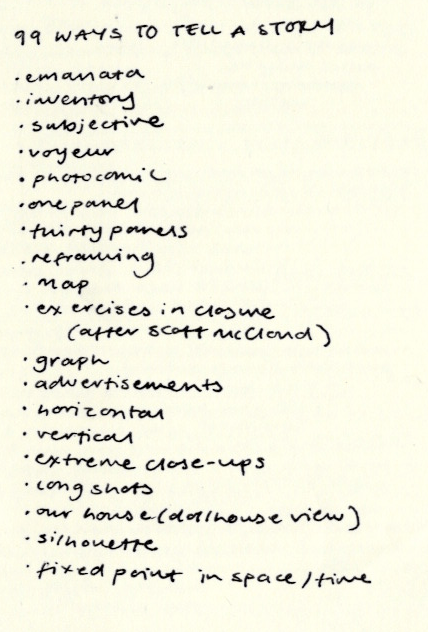 99 WAYS TO TELL A STORY
· emanata
· inventory
· subjective
· voyeur
· photocomic
· one panel
· thirty panels
· reframing
· map
· exercises in closure
(after scott mcCloud)
· graph
· advertisements
· horizontal
· vertical
· extreme close-ups
· long shots
· our house (dollhouse view)
· silhouette
· fixed point in space/time